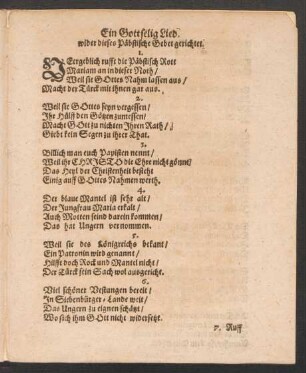 Ein Gottselig Lied.
wider dieses Päbstische Gebet gerichtet.
1.
VErgeblich rufft die Päbstisch Rott
Mariam an in dieser Noth/
Weil sie GOttes Nahm lassen aus/
Macht der Türck mit ihnen gar aus.
2.
Weil sie GOttes seyn vergessen/
Ihr Hülff den Götzen zumessen/
Macht GOtt zu nichten Ihren Rath/
Giebt kein Segen zu ihrer That.
3.
Billich man euch Papisten nennt/
Weil ihr CHRISTO die Ehr nicht gönnt/
Das Heyl der Christenheit besteht
Einig auff GOttes Nahmen werth.
4.
Der blaue Mantel ist sehr alt/
Der Jungfrau Maria erkalt/
Auch Motten seind darein kommen/
Das hat Ungern vernommen.
5.
Weil sie des Königreichs bekant/
Ein Patronin wird genannt/
Hülfft doch Rock und Mantel nicht/
Der Türck sein Sach wol ausgericht.
6.
Viel schöner Vestungen bereit/
In Siebenbürger-Lande weit/
Das Ungern zu eignen schätzt/
Wo sich ihm GOtt nicht widersetzt.
7. Ruff